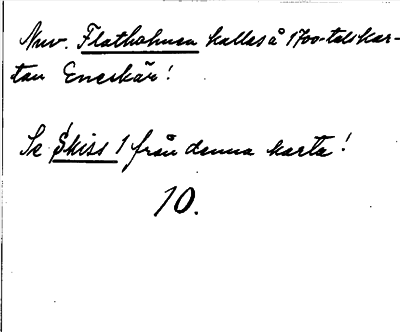 Nuv. Flatholmen kallas å 1700-talskar-
tan Enerskär!
Se Skiss 1 från denna karta!
10.